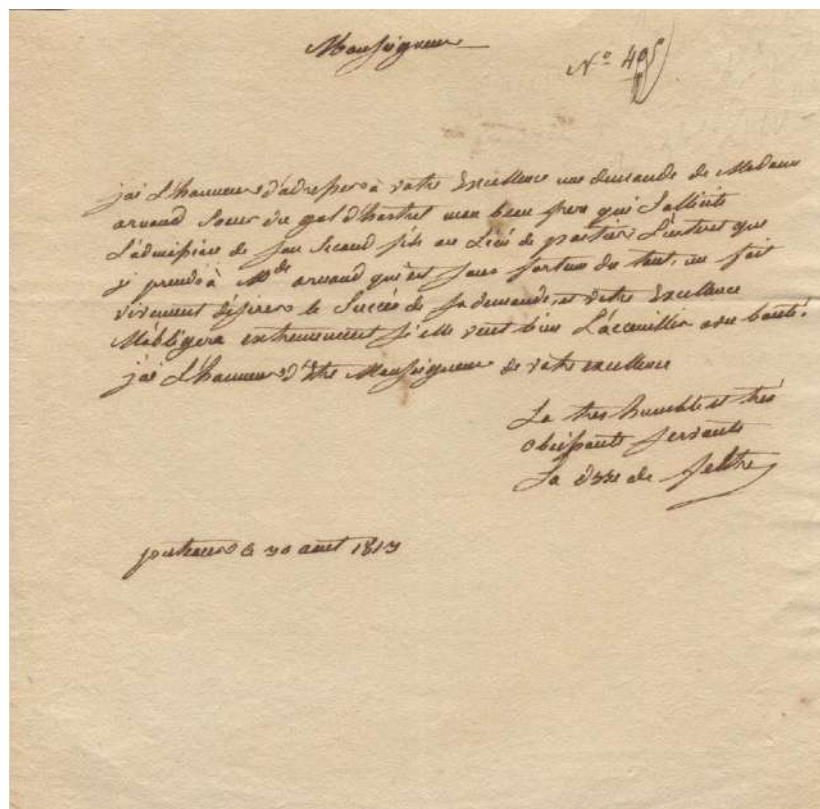 Monseigneur
N° 405
jai L'honneur d'adresser à votre Excellence une demande de Madame
arnaud Soeur du gal d'hastrel mon beau frere qui Sollicite
L'admission de son Second fils au Liceé de poitiers L'interet que
je prends à Mde arnaud qui est sans fortune du tout, me fait
vivement désirer le Succès de sa demande, et votre Excellence
M'obligera extremement si elle veut bien L'accueillir avec bonté.
jai L'honneur d'Etre Monseigneur de votre excellence
La tres humble et trés
obeissante servante
La dsse de feltre
ce 30 aout 1813